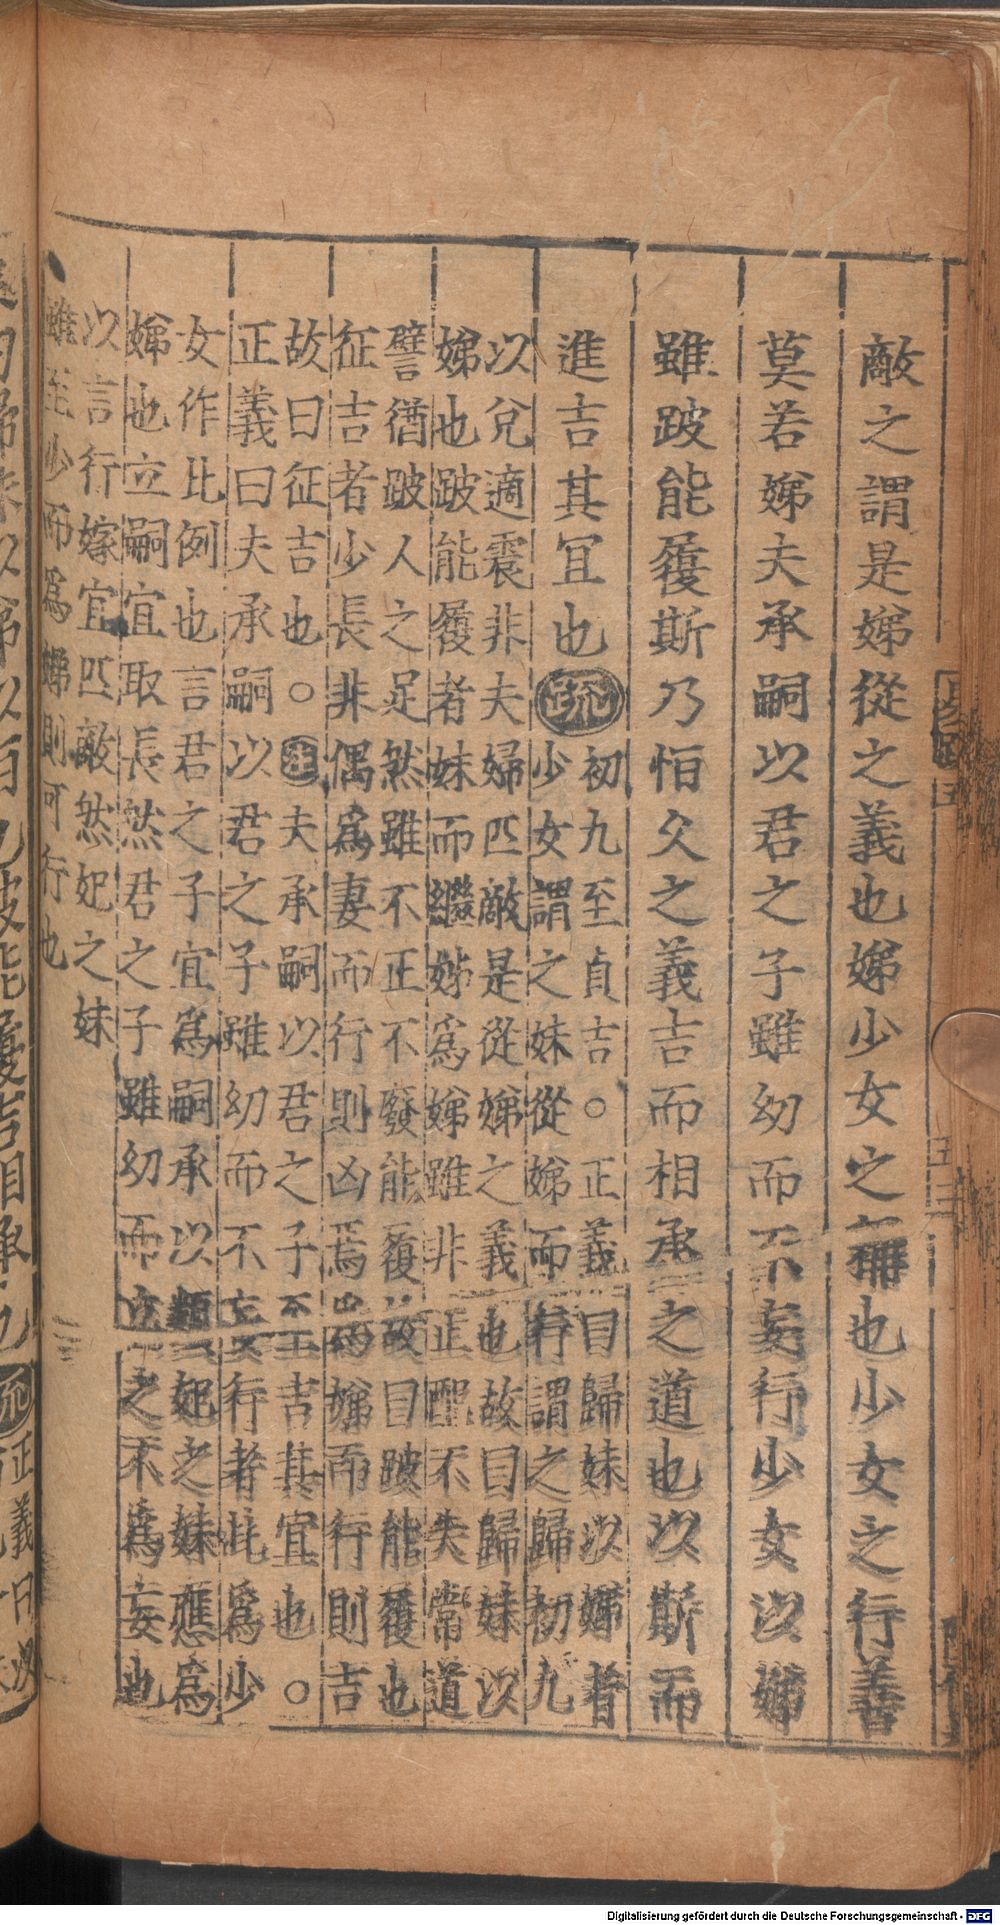 敵之謂是娣從之義也娣少女之稱也少女之行善
莫若娣夫承嗣以君之子雖幼而不妄行少女以娣
雖跛能履斯乃恒久之義吉而相承之道也以斯而
進吉其宜也疏
初九至貞吉。正義曰歸妹以娣者
少女謂之妹從娣而行謂之歸初九
以兌適震非夫婦匹敵是從娣之義也故曰歸妹以
娣也跛能履者妹而繼姊為娣雖非正配不失常道
譬猶跛人之足然雖不正不廢能履故曰跛能履也
征吉者少長非偶為妻而行則凶焉為娣而行則吉
故曰征吉也。注夫承嗣以君之子至吉其宜也。
正義曰夫承嗣以君之子雖幼而不妄行者此為少
女作比例也言君之子宜為嗣承以類妃之妹應為
娣也立嗣宜取長然君之子雖幼而立之不為妄也
以言行嫁宜匹敵然妃之妹
雖至少而為娣則可行也
Digitalisierung gefördert durch die Deutsche Forschungsgemeinschaft - DFG